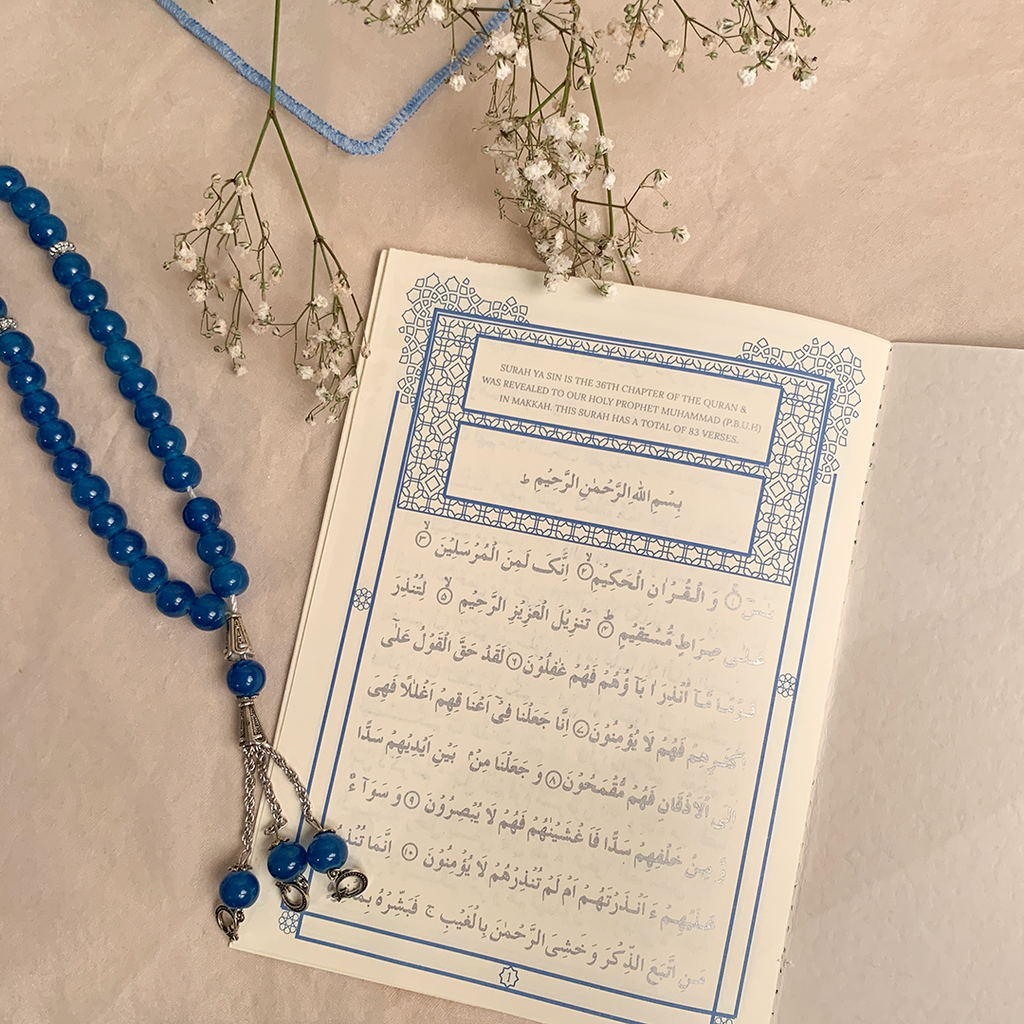 SURAH YA SIN IS THE 36TH CHAPTER OF THE QURAN &
WAS REVEALED TO OUR HOLY PROPHET MUHAMMAD (P.B.U.H)
IN MAKKAH. THIS SURAH HAS A TOTAL OF 83 VERSES.
بِسْمِ اللهِ الرَّحْمٰنِ الرَّحِيْمِ ط
يٰسٓ ۚ﴿۱﴾ وَ الْقُرْاٰنِ الْحَكِيْمِ ۙ﴿۲﴾ اِنَّكَ لَمِنَ الْمُرْسَلِيْنَ ۙ﴿۳﴾
عَلٰى صِرَاطٍ مُّسْتَقِيْمٍ ؕ﴿۴﴾ تَنْزِيْلَ الْعَزِيْزِ الرَّحِيْمِ ۙ﴿۵﴾ لِتُنْذِرَ
قَوْمًا مَّاۤ اُنْذِرَ اٰبَآؤُهُمْ فَهُمْ غٰفِلُوْنَ ﴿۶﴾ لَقَدْ حَقَّ الْقَوْلُ عَلٰٓى
اَكْثَرِهِمْ فَهُمْ لَا يُؤْمِنُوْنَ ﴿۷﴾ اِنَّا جَعَلْنَا فِيْۤ اَعْنَاقِهِمْ اَغْلٰلًا فَهِيَ
اِلَى الْاَذْقَانِ فَهُمْ مُّقْمَحُوْنَ ﴿۸﴾ وَ جَعَلْنَا مِنْۢ بَيْنِ اَيْدِيْهِمْ سَدًّا
وَّ مِنْ خَلْفِهِمْ سَدًّا فَاَغْشَيْنٰهُمْ فَهُمْ لَا يُبْصِرُوْنَ ﴿۹﴾ وَ سَوَآءٌ
عَلَيْهِمْ ءَاَنْذَرْتَهُمْ اَمْ لَمْ تُنْذِرْهُمْ لَا يُؤْمِنُوْنَ ﴿۱۰﴾ اِنَّمَا
مَنِ اتَّبَعَ الذِّكْرَ وَ خَشِيَ الرَّحْمٰنَ بِالْغَيْبِ ج فَبَشِّرْهُ
1